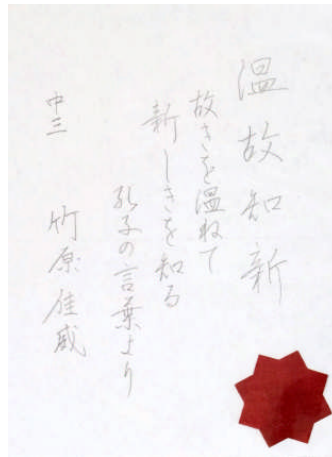 温故知新
故きを温ねて
新しきを知る
孔子の言葉より
中三 竹原佳威